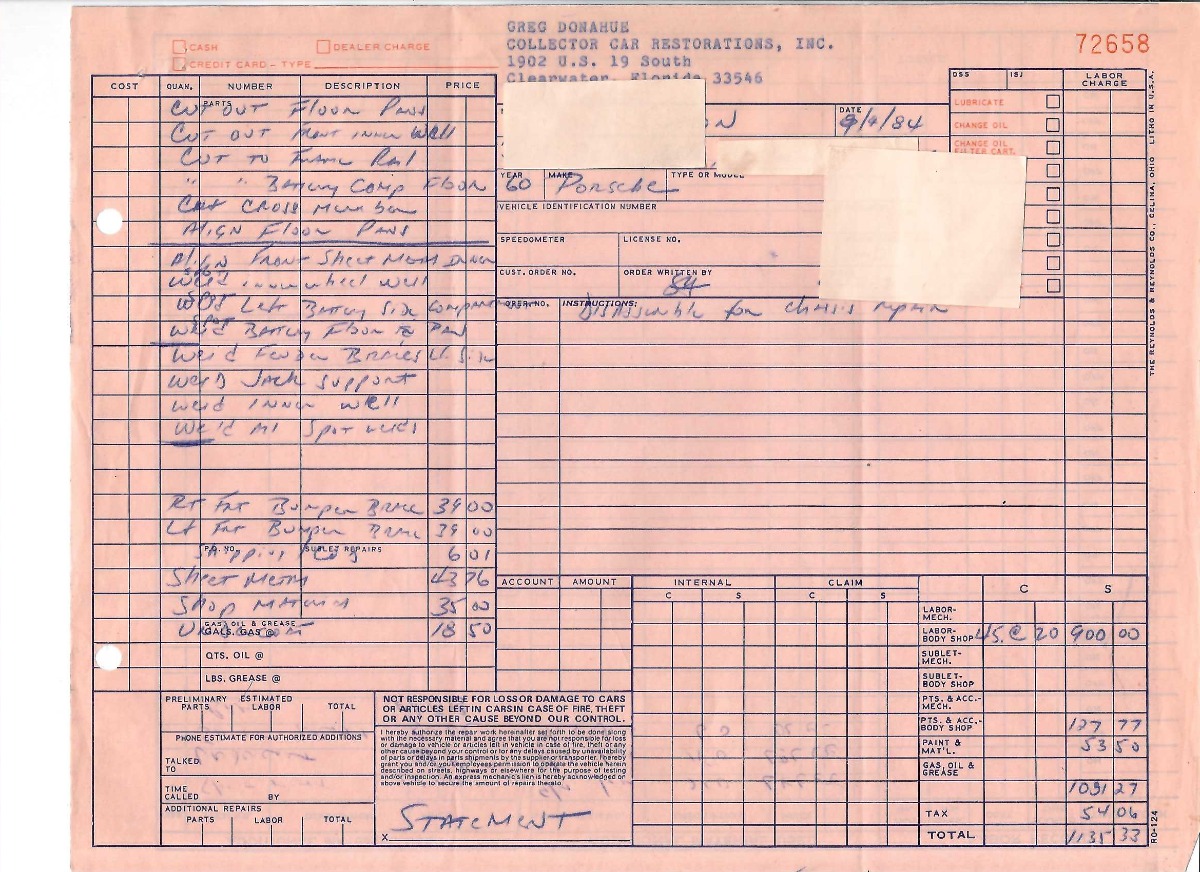 GREG DONAHUE
COLLECTOR CAR RESTORATIONS, INC.
1902 U.S. 19 South
Clearwater, Florida 33546
72658
CASH DEALER CHARGE
CREDIT CARD - TYPE
COST QUAN. NUMBER DESCRIPTION PRICE
PARTS
Cut out Floor Pans
Cut out Front inner well
Cut to Frame Rail
" " Battery Comp Floor
Cut Cross member
Align Floor Pans
Align Front Sheet Metal Inner
Weld inner wheel well
Left Battery Side Compartment
Weld Battery Floor to Pans
Weld Fender Braces Lt. Side
Weld Jack Support
Weld Inner Well
Weld All Spot welds
Rt Frt Bumper Brace 39 00
Lt Frt Bumper Brace 39 00
P.O. NO. SUBLET REPAIRS
Shipping 6 01
Sheet Metal 43 76
Shop Material 35 00
GAS, OIL & GREASE
GALS. GAS @
18 50
QTS. OIL @
LBS. GREASE @
DATE
9/4/84
YEAR MAKE TYPE OR MODEL
60 Porsche
VEHICLE IDENTIFICATION NUMBER
SPEEDOMETER LICENSE NO.
CUST. ORDER NO. ORDER WRITTEN BY
84
OPER. NO. INSTRUCTIONS:
Disassemble for Chasis repair
DSS ISJ LABOR CHARGE
LUBRICATE
CHANGE OIL
CHANGE OIL FILTER CART.
THE REYNOLDS & REYNOLDS CO., CELINA, OHIO LITHO IN U.S.A.
ACCOUNT AMOUNT INTERNAL CLAIM
C S C S C S
LABOR-MECH.
LABOR-BODY SHOP 45 @ 20 900 00
SUBLET-MECH.
SUBLET-BODY SHOP
PTS. & ACC.-MECH.
PTS. & ACC.-BODY SHOP 127 77
PAINT & MAT'L. 53 50
GAS, OIL & GREASE
1081 27
TAX 54 06
TOTAL 1135 33
RO-124
PRELIMINARY ESTIMATED
PARTS LABOR TOTAL
PHONE ESTIMATE FOR AUTHORIZED ADDITIONS
TALKED TO
TIME CALLED BY
ADDITIONAL REPAIRS
PARTS LABOR TOTAL
NOT RESPONSIBLE FOR LOSS OR DAMAGE TO CARS
OR ARTICLES LEFT IN CARS IN CASE OF FIRE, THEFT
OR ANY OTHER CAUSE BEYOND OUR CONTROL.
I hereby authorize the repair work hereinafter set forth to be done along
with the necessary material and agree that you are not responsible for loss
or damage to vehicle or articles left in vehicle in case of fire, theft or any
other cause beyond your control or for any delays caused by unavailability
of parts or delays in parts shipments by the supplier or transporter. I hereby
grant you and/or your employees permission to operate the vehicle herein
described on streets, highways or elsewhere for the purpose of testing
and/or inspection. An express mechanic's lien is hereby acknowledged on
above vehicle to secure the amount of repairs thereto.
Statement
X